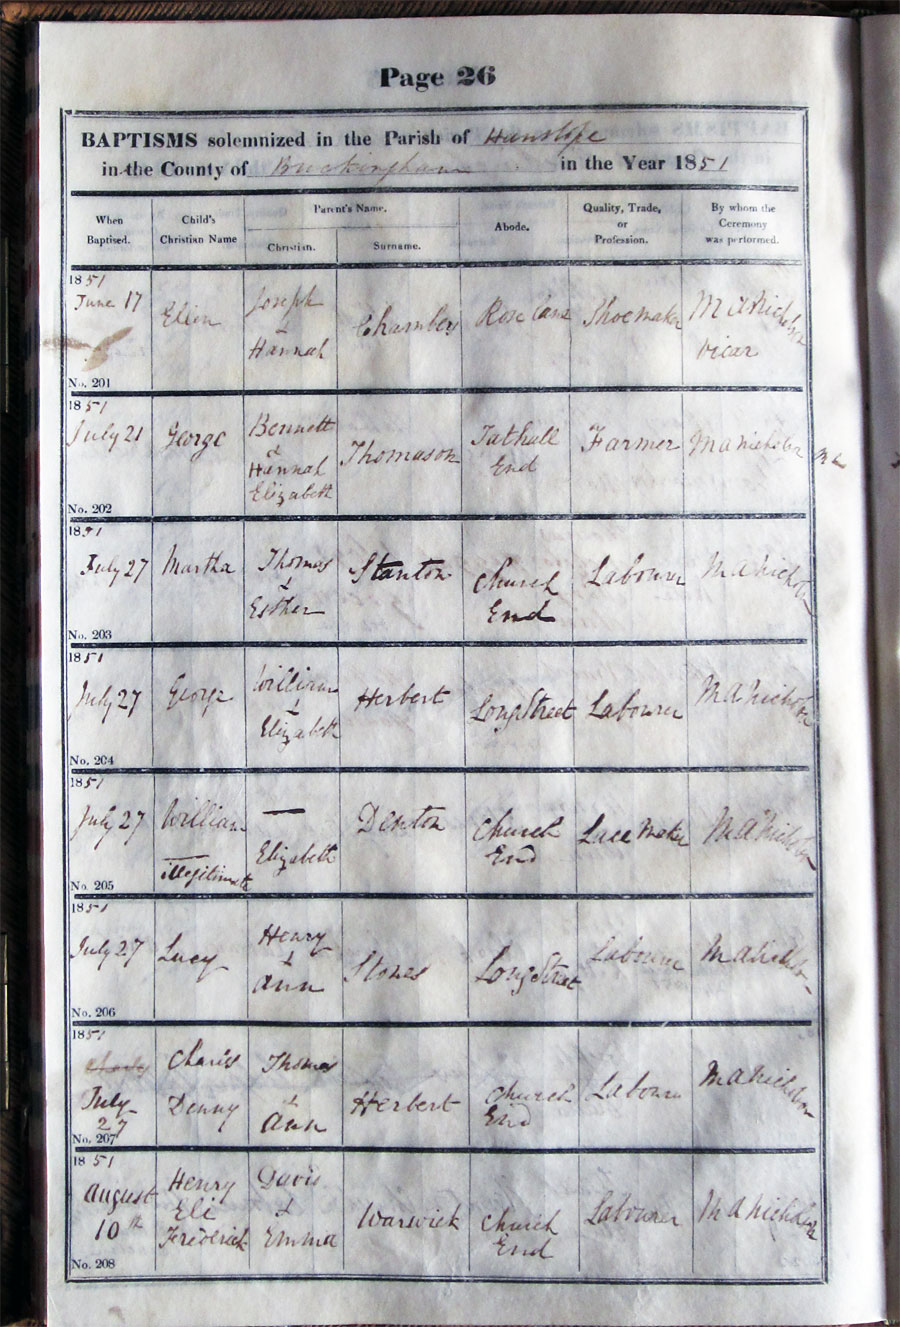 Page 26
BAPTISMS solemnized in the Parish of Hanslope
in the County of Buckingham in the Year 1851
When Baptised.
Child's Christian Name
Parent's Name.
Christian.
Surname.
Abode.
Quality, Trade, or Profession.
By whom the Ceremony was performed.
1851
June 17
Ellen
Joseph
&
Hannah
Chambers
Rose Lane
Shoemaker
M A Nicholson
Vicar
No. 201
1851
July 21
George
Bennett
&
Hannah
Elizabeth
Thomason
Tathall
End
Farmer
M A Nicholson
No. 202
1851
July 27
Martha
Thomas
&
Esther
Stanton
Church
End
Labourer
M A Nicholson
No. 203
1851
July 27
George
William
&
Elizabeth
Herbert
Long Street
Labourer
M A Nicholson
No. 204
1851
July 27
William
illegitimate
—
Elizabeth
Denton
Church
End
Lace Maker
M A Nicholson
No. 205
1851
July 27
Lucy
Henry
&
Ann
Stones
Long Street
Labourer
M A Nicholson
No. 206
1851
July
27
Denny
Thomas
&
Ann
Herbert
Church
End
Labourer
M A Nicholson
No. 207
1851
August
10th
Henry
Eli
Frederick
Davis
&
Emma
Warwick
Church
End
Labourer
M A Nicholson
No. 208